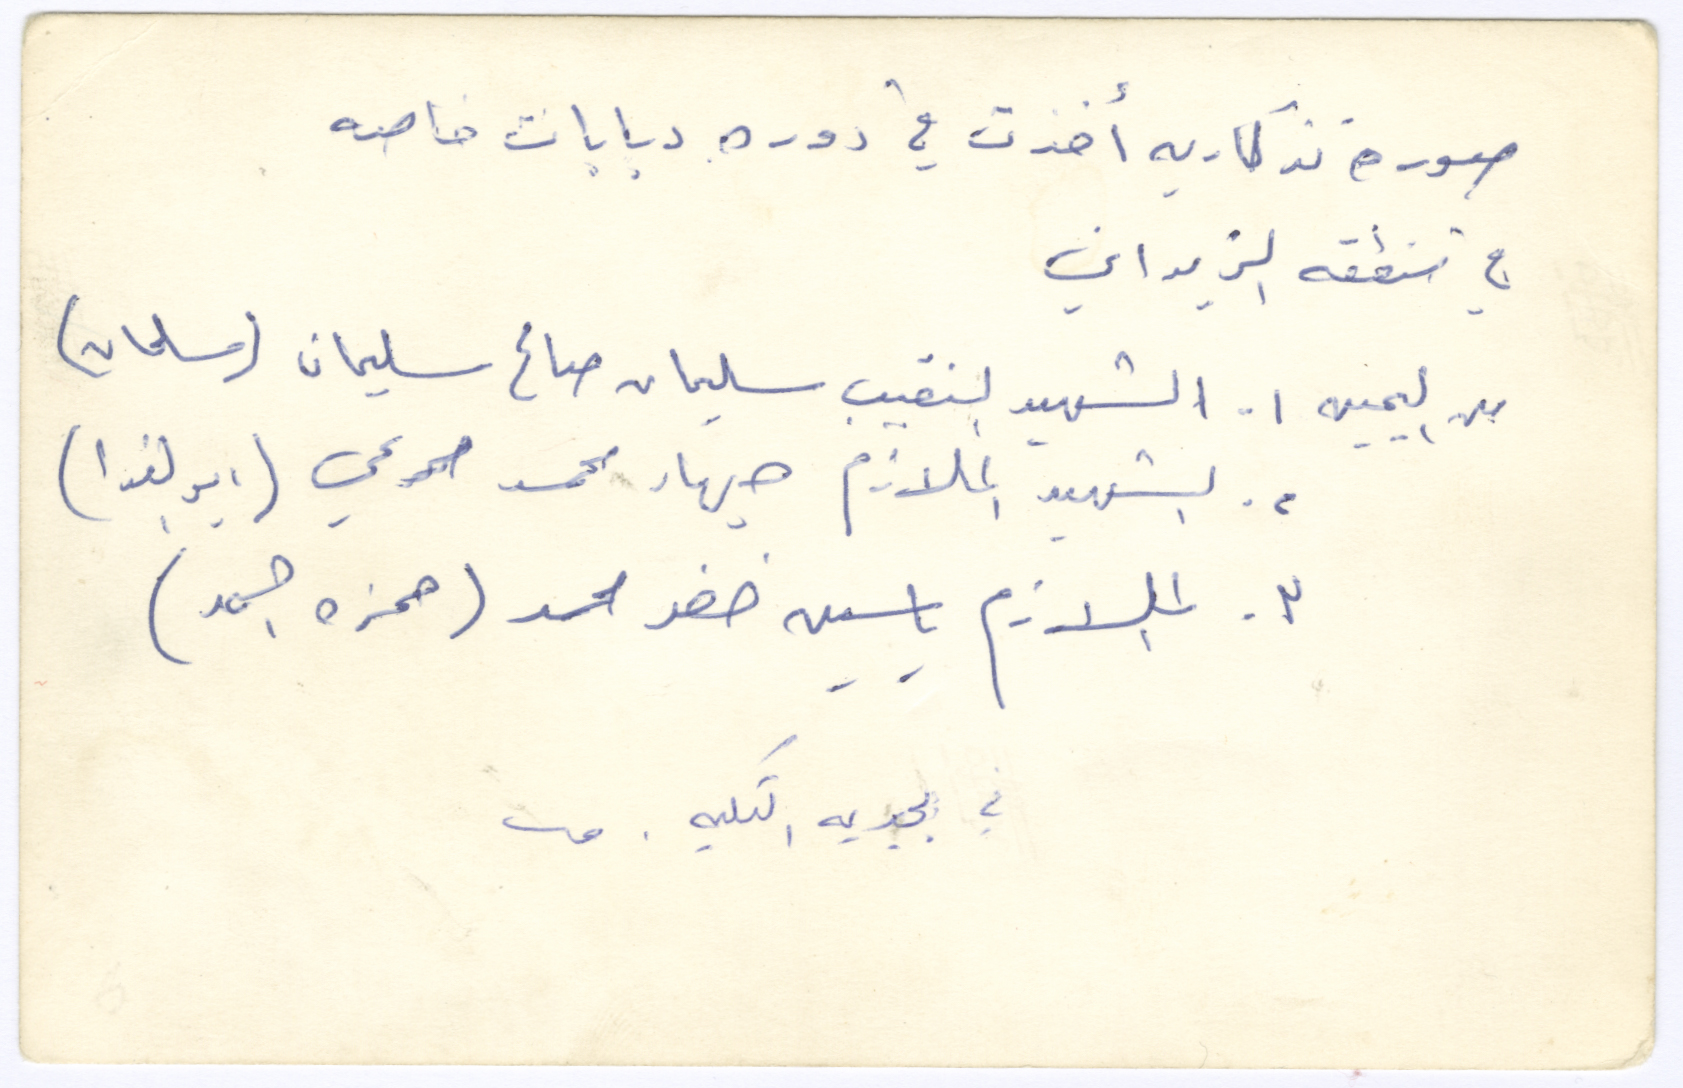 صوره تذكاريه أخذت في دوره دبابات خاصه
في منطقه الزبداني
من اليمين ١. الشهيد النقيب سليمان صالح سليمان (سلمان)
٢. الشهيد الملازم جهاد محمد محمد (ابو الفدا)
٣. الملازم ياسين خضر محمد (حمزه احمد)
في الكليه